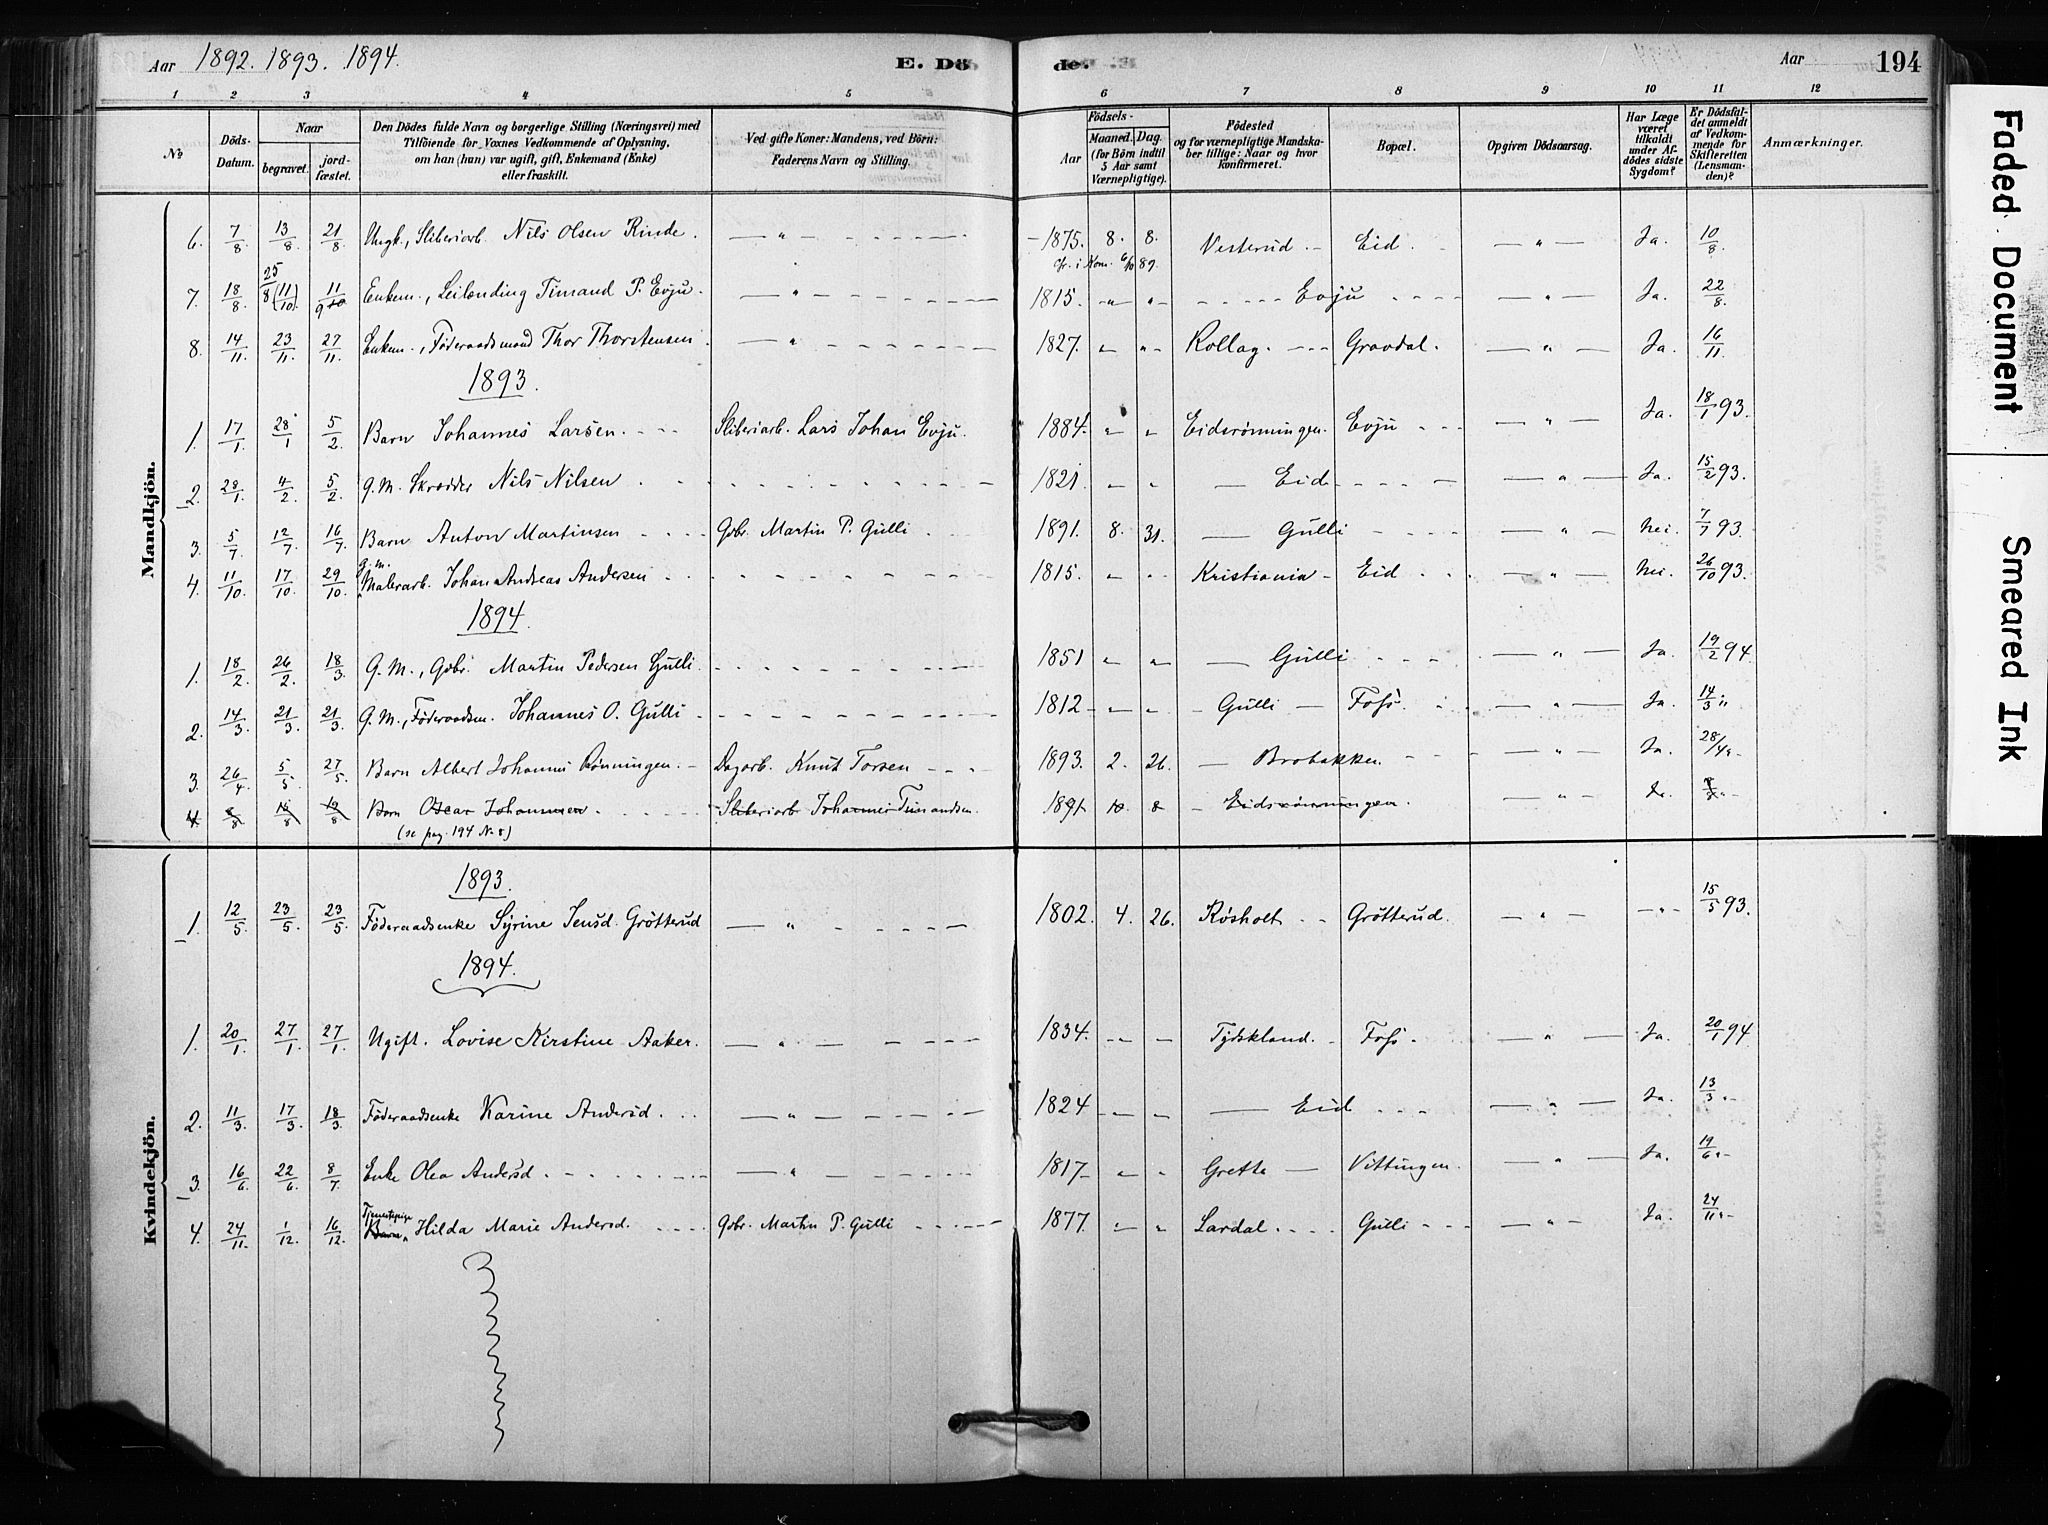 Aar 1892. 1893. 1894. E. Dö de. Aar 194
1 2 3 4 5 6 7 8 9 10 11 12
No Döds-Datum. Naar begravet. jord-fæstet. Den Dödes fulde Navn og borgerlige Stilling (Næringsvei) med Tilföiende for Voxnes Vedkommende af Oplysning, om han (hun) var ugift, gift, Enkemand (Enke) eller fraskilt. Ved gifte Koner: Mandens, ved Börn: Faderens Navn og Stilling. Födsels- Aar Maaned. Dag. (for Börn indtil 5 Aar samt Værnepligtige). Födested og for værnepligtige Mandskaber tillige: Naar og hvor konfirmeret. Bopæl. Opgiven Dödsaarsag. Har Læge været tilkaldt under Afdödes sidste Sygdom? Er Dödsfaldet anmeldt af Vedkommende for Skifteretten (Lensmanden)? Anmærkninger.
Mandkjön.
6. 7/8 13/8 21/8 Ungk., Sliberiarb. Nils Olsen Rinde. — " — 1875. 8. 8. Vesterud. — Eid. — " — Ja. 10/8
7. 18/8 25/8 (11/10) 11/9 10 Enkem., Leilænding Timand P. Evju. — " — 1815. — " — " — Evju — " — Ja. 22/8.
8. 14/11. 23/11. 27/11. Enkem., Föderaadsmand Thor Thorstensen. — " — 1827. " " Rollag. — Gravdal. — " — Ja. 16/11
1893.
1. 17/1. 28/1 5/2. Barn Johannes Larsen. Sliberiarb. Lars Johan Evju. 1884. " " Eidsrønningen. Evju — " — Ja. 18/1 93.
2. 28/1. 4/2. 5/2. G. M. Skrædder Nils Nilsen 1821. " " — Eid — " — Ja. 15/2 93.
3. 5/7. 12/7 16/7. Barn Anton Martinsen Gbr. Martin P. Gulli. 1891. 8. 31. — Gulli — " — Nei. 7/7 93.
4. 11/10 17/10 29/10 G. m. Malerarb. Johan Andreas Andersen 1815. " " Kristiania — Eid — " — Nei. 26/10 93.
1894.
1. 18/2. 26/2. 18/3. G. M., Gbr. Martin Pedersen Gulli. 1851 " " — Gulli — " — Ja. 19/2 94.
2. 14/3. 21/3. 21/3. G. M., Föderaadsm. Johannes O. Gulli 1812 — " " — Gulli — Foss. — " — Ja. 14/3 "
3. 26/4 5/5. 27/5. Barn Albert Johannes Rønningen. — Dagarb. Knut Torsen 1893. 2. 26. — Brobakken — " — Ja. 28/4 " -
4. 8/8 18/8 19/8 Barn Oscar Johannesen. Sliberiarb Johannes Timandsen. 1891 10. 8 — Eidsrønningen. — " — Ja. 8/8 " -
(se pag. 194 N. 8)
Kvindekjön.
1893.
1. 12/5. 23/5. 23/5. Föderaadsenke Syrine Jensd. Gröttterud — " — 1802. 4. 26. Røsholt — Grötterud. — " — — " — 15/5 93.
1894.
1. 20/1. 27/1. 27/1. Ugift. Lovise Kirstine Aaker. — " — 1834. — " — Tydskland. — Foss. — " — Ja. 20/1 94
2. 11/3. 17/3. 18/3. Föderaadsenke Karine Andersd. — " — 1824 — " — — Eid — " — Ja. 13/3 " -
3. 16/6. 22/6. 8/7 Enke Olea Andersd. — " — 1817 — " — Grette — Vittingen. — " — Ja. 19/6 " -
4. 24/11. 1/12. 16/12. Tjenestepige Barn " Hilda Marie Andersd. Gbr. Martin P. Gulli 1877 — " Lardal. Gulli — " — Ja. 24/11 " -
Faded Document
Smeared Ink